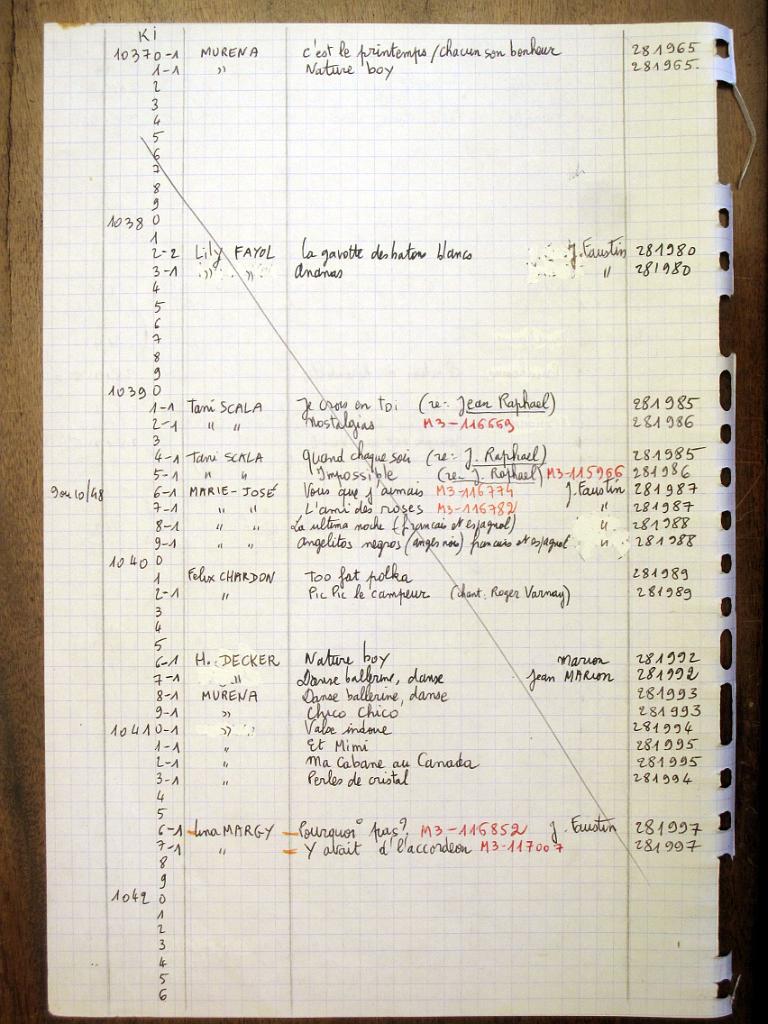 Ki
10370-1 MURENA c'est le printemps / chacun son bonheur 281965
1-1 " Nature boy 281965.
2
3
4
5
6
7
8
9
1038 0
1
2-2 Lily FAYOL La gavotte des batons blancs J. Faustin 281980
3-1 " " Ananas " 281980
4
5
6
7
8
9
1039 0
1-1 Tani SCALA Je crois en toi (re: Jean Raphael) 281985
2-1 " " Nostalgias M3-116669 281986
3
4-1 Tani SCALA Quand chaque soir (re: J. Raphael) 281985
5-1 " " Impossible (re: J. Raphael) M3-115966 281986
9 ou 10/48 6-1 MARIE-JOSÉ Vous que j'aimais M3-116774 J. Faustin 281987
7-1 " " L'ami des roses M3-116782 " 281987
8-1 " " La ultima noche (francais et espagnol) " 281988
9-1 " " Angelitos negros (anges noirs) francais et espagnol " 281988
1040 0
1 Felix CHARDON Too fat polka 281989
2-1 " Pic Pic le campeur (chant. Roger Varnay) 281989
3
4
5
6-1 H. DECKER Nature boy Marion 281992
7-1 " Danse ballerine, danse Jean MARION 281992
8-1 MURENA Danse ballerine, danse 281993
9-1 " Chico Chico 281993
1041 0-1 " Valse indoue 281994
1-1 " Et Mimi 281995
2-1 " Ma Cabane au Canada 281995
3-1 " Perles de cristal 281994
4
5
6-1 Lina MARGY Pourquoi pas? M3-116852 J. Faustin 281997
7-1 " Y avait d'l'accordeon M3-117007 281997
8
9
1042 0
1
2
3
4
5
6